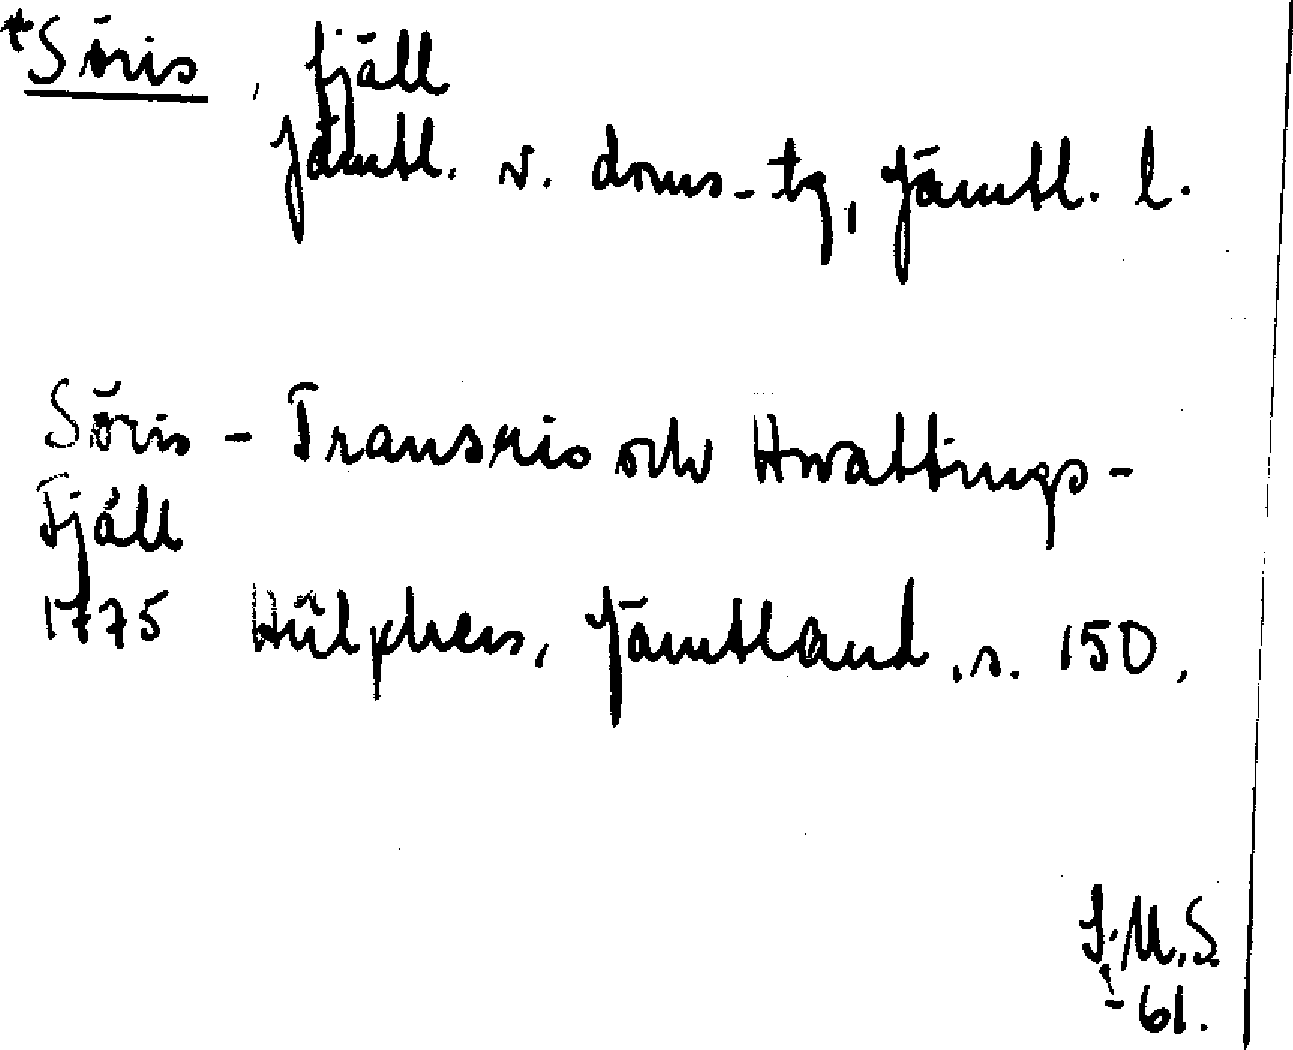 *Söris, fjäll
Jämtl. v. doms-tg, Jämtl. l.
Söris - Transris och Hwattings-
Fjäll
1775 Hülphers, Jämtland, s. 150.
J.M.S.
-61.